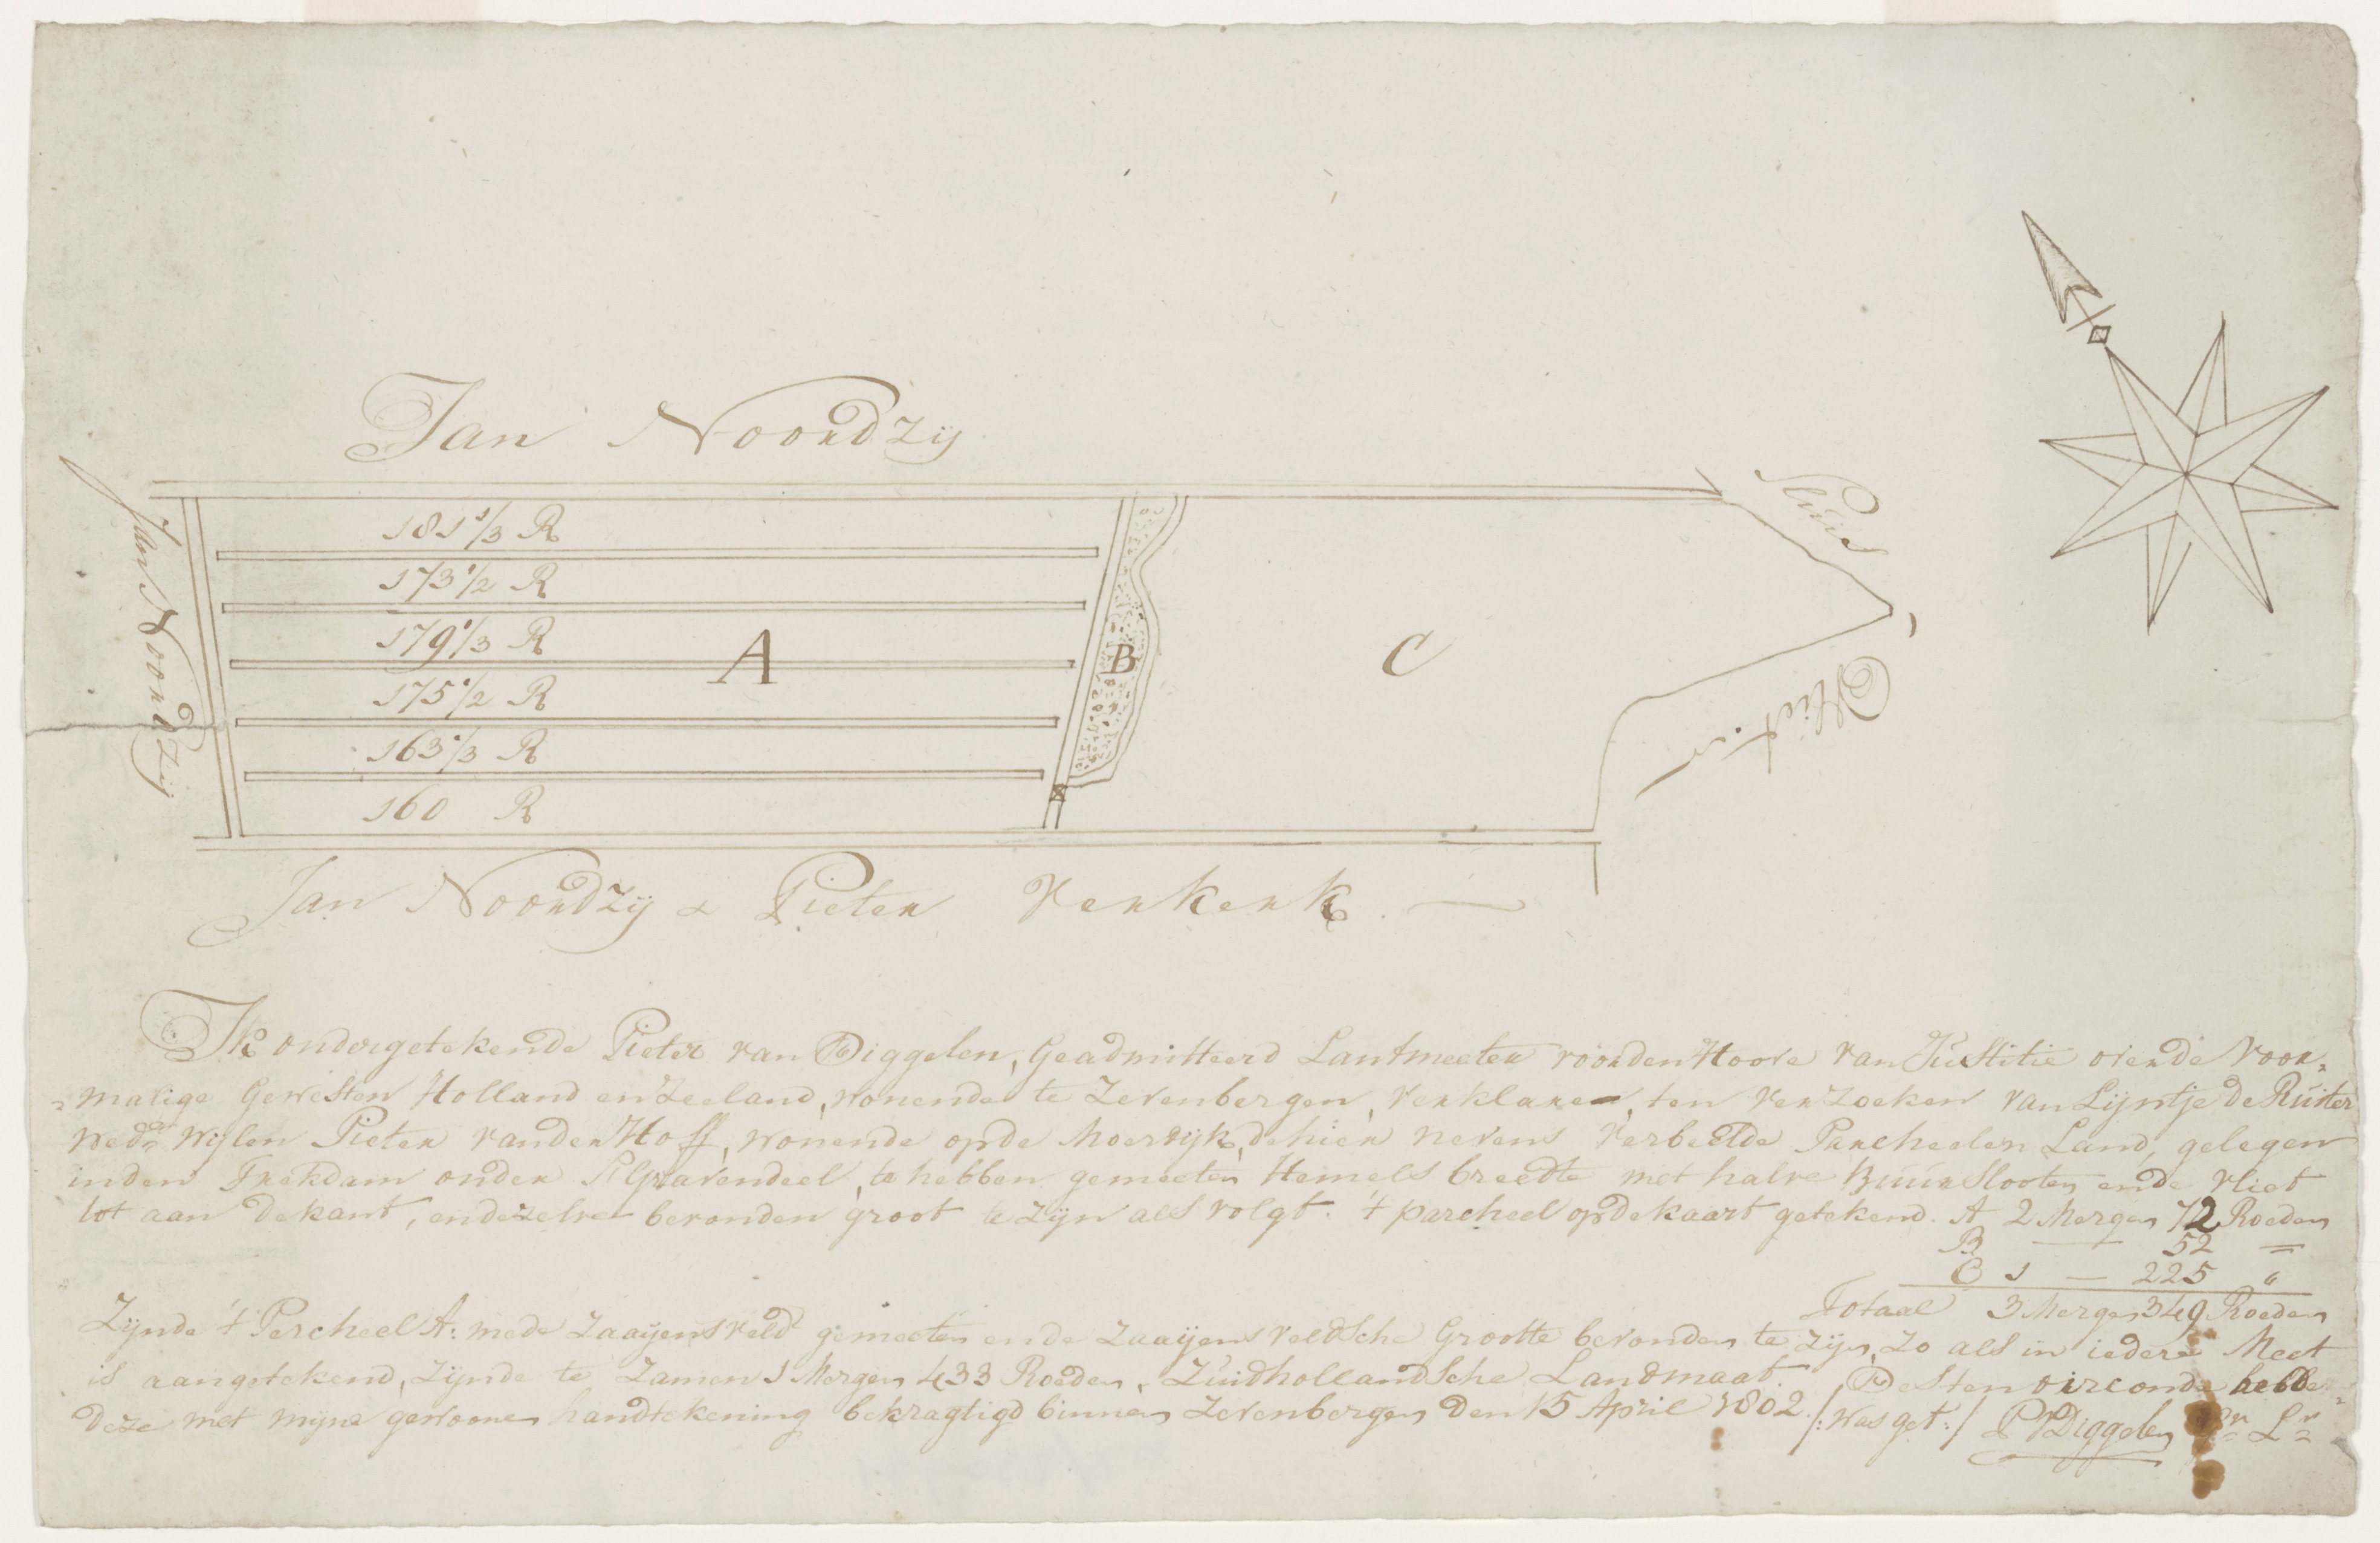 Jan Noordzij
Jan Noordzij
181 1/3 R
173 1/2 R
179 1/3 R
175 1/2 R
163 1/3 R
160 R
A
B
C
Sluis
Vliet
Jan Noordzij & Pieter Verkerk.
Ik ondergetekende Pieter van Diggelen, Geadmitteerd Lantmeeter voorden Hoove van Justitie overde voor=
=malige Gewesten Holland en Zeeland, wonende te Zevenbergen, verklare, ten verzoeken van Lijntje de Ruiter
wedᵉ wijlen Pieter vanden Hoff, wonende opde Moerdijk, dehier nevens verbeelde Percheelen Land, gelegen
inden Trekdam onder S'Gravendeel, te hebben gemeeten Hemels breedte met halve Buur Slooten ende vliet
tot aan de kant, endezelve bevonden groot te zijn als volgt: 't parcheel opde kaart getekend. A 2 Mergen 72 Roeden
B — 52 =
C 1 — 225 "
Totaal 3 Mergen 349 Roeden
Zijnde 't Percheel A: mede Zaaijensveld gemeeten ende Zaaijensveldsche Grootte bevonden te zijn, zo als in iedere Meet
is aangetekend, zijnde te Zamen 1 Mergen 433 Roeden, Zuidhollandsche Landmaat. Desten oirconde hebbe
deze met mijne gewoone handtekening bekragtigd binnen Zevenbergen den 15 April 1802. /:was get:/ P V Diggelen Lʳ